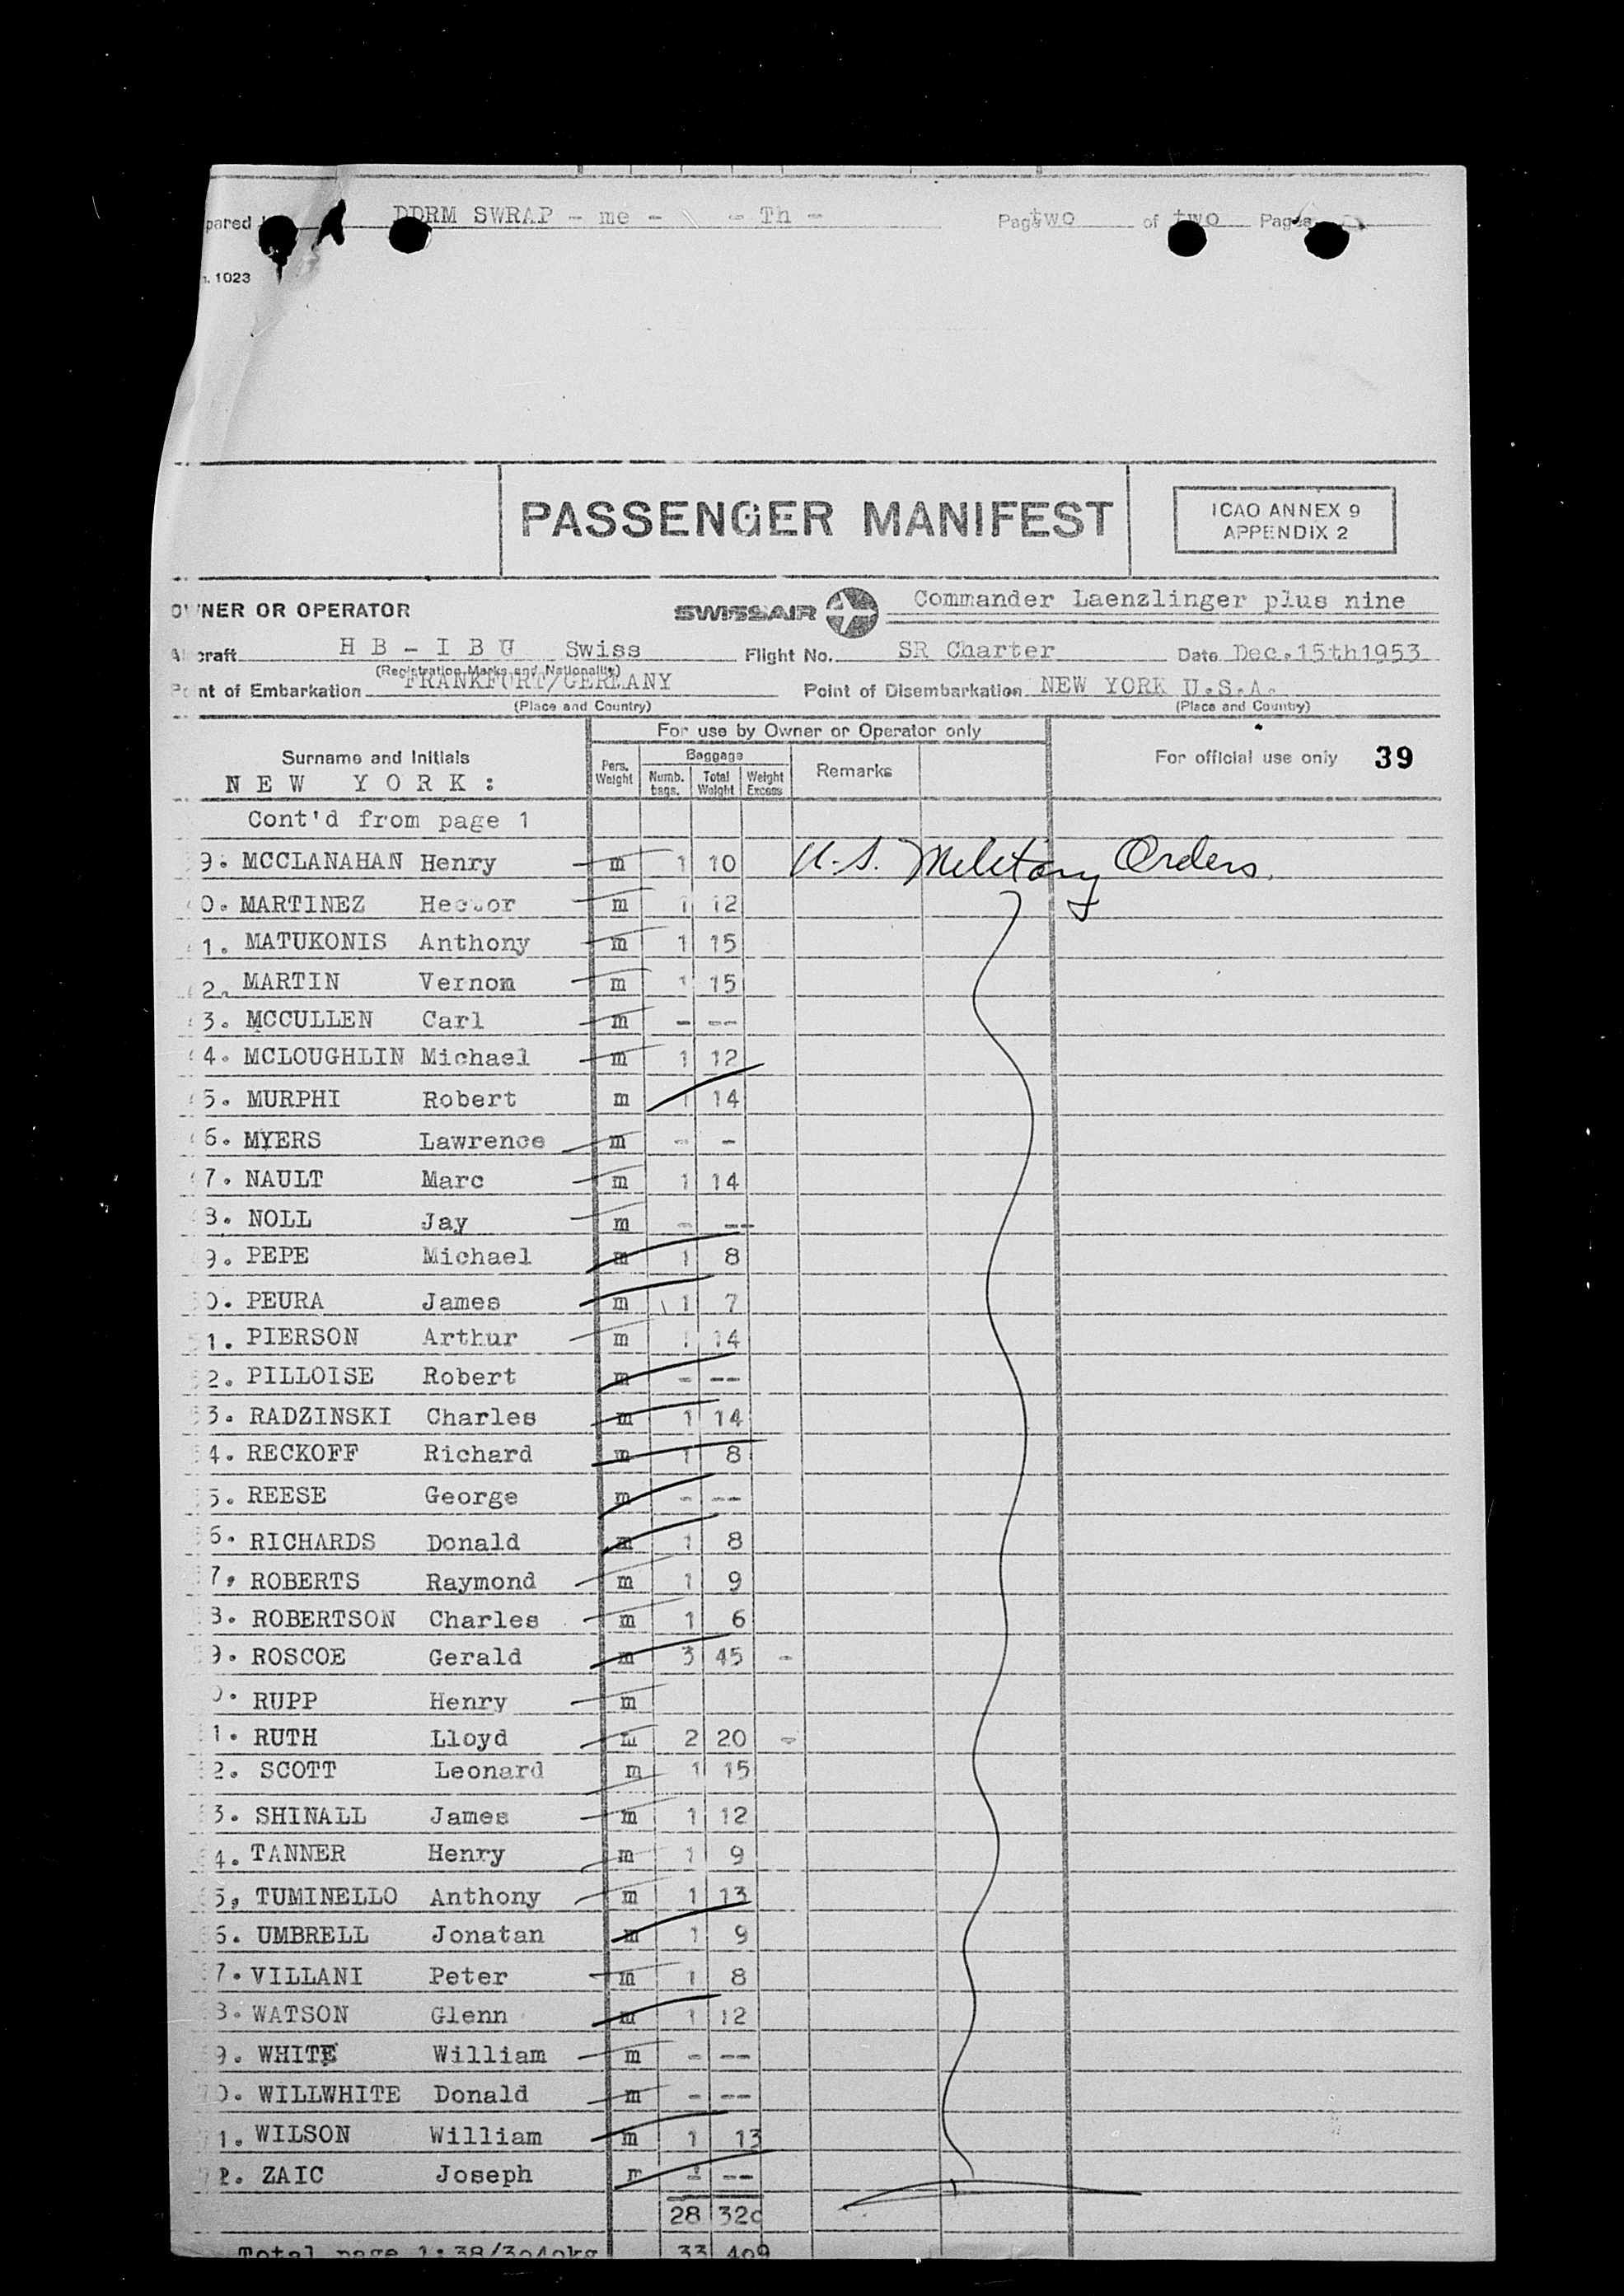 pared DDRM SWRAP - me - - Th - Page two of two Pages
1023
PASSENGER MANIFEST
ICAO ANNEX 9
APPENDIX 2
OWNER OR OPERATOR SWISSAIR Commander Laenzlinger plus nine
Aircraft H B - I B U Swiss Flight No. SR Charter Date Dec.15th1953
(Registration Marks and Nationality)
Point of Embarkation FRANKFURT/GERMANY Point of Disembarkation NEW YORK U.S.A.
(Place and Country) (Place and Country)
For use by Owner or Operator only
Surname and Initials Pers. Weight Baggage Numb. bags. Total Weight Weight Excess Remarks For official use only 39
N E W Y O R K :
Cont'd from page 1
9. MCCLANAHAN Henry m 1 10 U.S. Military Orders.
0. MARTINEZ Hector m 1 12
1. MATUKONIS Anthony m 1 15
2. MARTIN Vernom m 1 15
3. MCCULLEN Carl m - ---
4. MCLOUGHLIN Michael m 1 12
5. MURPHI Robert m 1 14
6. MYERS Lawrence m - -
7. NAULT Marc m 1 14
8. NOLL Jay m - ---
9. PEPE Michael m 1 8
0. PEURA James m 1 7
1. PIERSON Arthur m 1 14
2. PILLOISE Robert m - ---
3. RADZINSKI Charles m 1 14
4. RECKOFF Richard m 1 8
5. REESE George m - ---
6. RICHARDS Donald m 1 8
7. ROBERTS Raymond m 1 9
8. ROBERTSON Charles m 1 6
9. ROSCOE Gerald m 3 45 -
0. RUPP Henry m
1. RUTH Lloyd m 2 20 -
2. SCOTT Leonard m 1 15
3. SHINALL James m 1 12
4. TANNER Henry m 1 9
5, TUMINELLO Anthony m 1 13
6. UMBRELL Jonatan m 1 9
7. VILLANI Peter m 1 8
8. WATSON Glenn m 1 12
9. WHITE William m - ---
0. WILLWHITE Donald m - ---
1. WILSON William m 1 13
2. ZAIC Joseph m - ---
28 32
Total page 1: 33